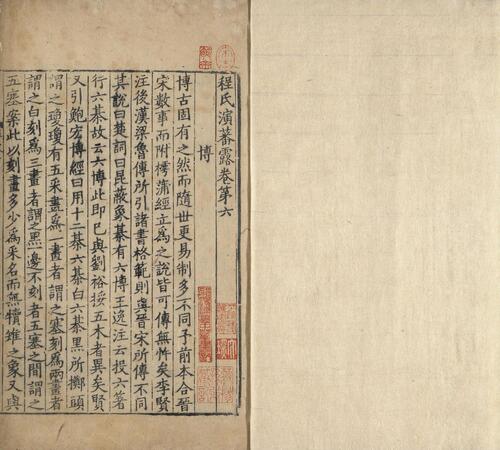 程氏演蕃露卷第六
博
博古固有之然而隨世更易制多不同予前本合晉
宋數事而附摴蒲經立為之說皆可傳無忤矣李賢
注後漢梁魯傳所引諸書格範則與晉宋所傳不同
其說曰楚詞曰昆蔽象棊有六博王逸注云投六箸
行六棊故云六博此即已與劉裕挼五木者異矣賢
又引鮑宏博經曰用十二棊六棊白六棊黑所擲頭
謂之瓊瓊有五采畫為一畫者謂之塞刻為兩畫者
謂之白刻為三畫者謂之黑一邊不刻者五塞之間謂之
五塞案此以刻畫多少為采名而無犢雉之象又與